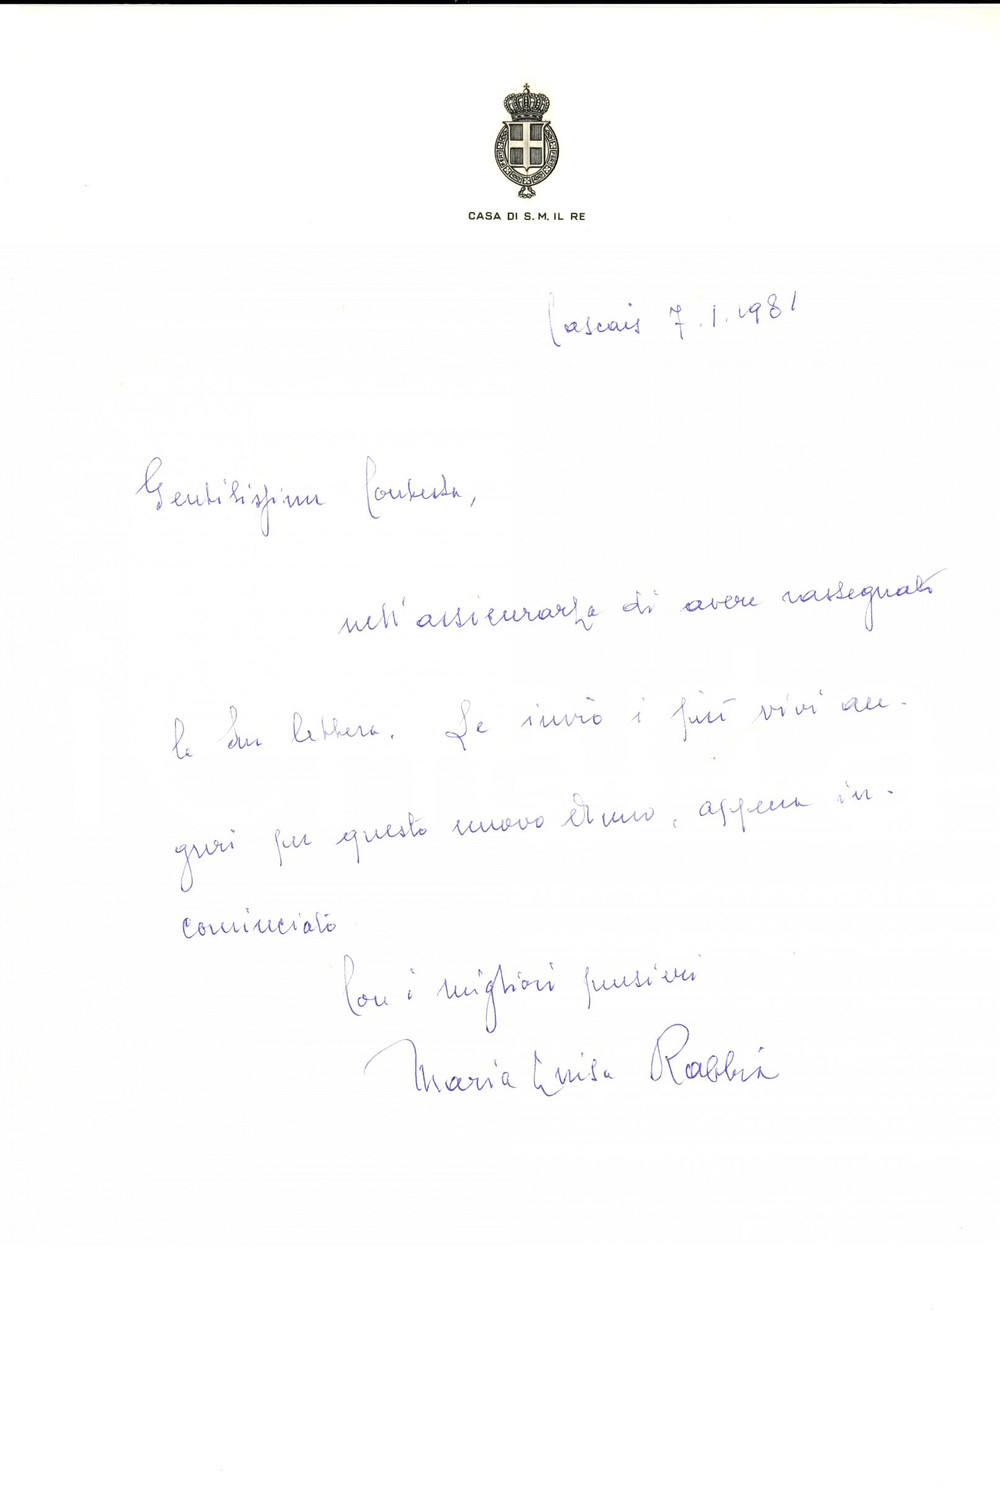 CASA DI S.M. IL RE
Cascais 7.1.1981
Gentilissima Contessa,
nell'assicurarLa di avere rassegnato
la Sua lettera, Le invio i più vivi au-
guri per questo nuovo Anno, appena in-
cominciato
Con i migliori pensieri
Maria Luisa Rabbia